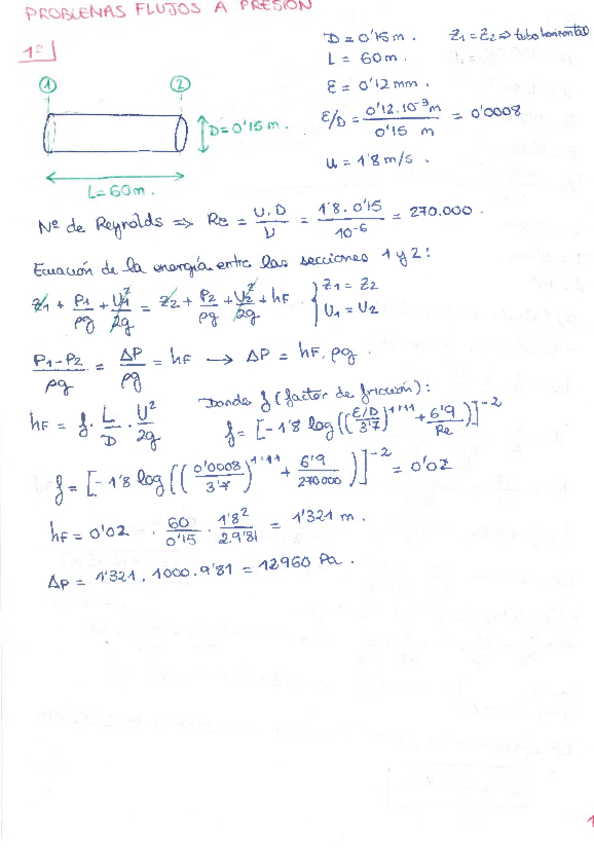 PROBLEMAS FLUJOS A PRESIÓN
1º
D = 0'15 m. Z1 = Z2 ⇒ tubo horizontal
L = 60 m.
ε = 0'12 mm.
ε/D = 0'12·10^-3 m / 0'15 m = 0'0008
u = 1'8 m/s.
1 2
D = 0'15 m.
L = 60 m.
Nº de Reynolds ⇒ Re = U.D / ν = 1'8·0'15 / 10^-6 = 270.000.
Ecuación de la energía entre las secciones 1 y 2:
Z1 + P1/ρg + U1²/2g = Z2 + P2/ρg + U2²/2g + hF. { Z1 = Z2
U1 = U2
P1-P2 / ρg = ΔP / ρg = hF → ΔP = hF. ρg.
hF = f · L/D · U²/2g Donde f (factor de fricción):
f = [-1'8 log((ε/D / 3'7)^1'11 + 6'9/Re)]^-2
f = [-1'8 log((0'0008 / 3'7)^1'11 + 6'9/270000)]^-2 = 0'02
hF = 0'02 · 60/0'15 · 1'8²/2.9'81 = 1'321 m.
ΔP = 1'321 . 1000 . 9'81 = 12960 Pa.
1